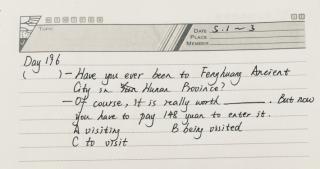 TOPIC
DATE 5.1~3
PLACE
MEMBER
Day 196
( ) — Have you ever been to Fenghuang Ancient
City in Hunan Province?
— Of course, it is really worth ________. But now
you have to pay 148 yuan to enter it.
A visiting B being visited
C to visit